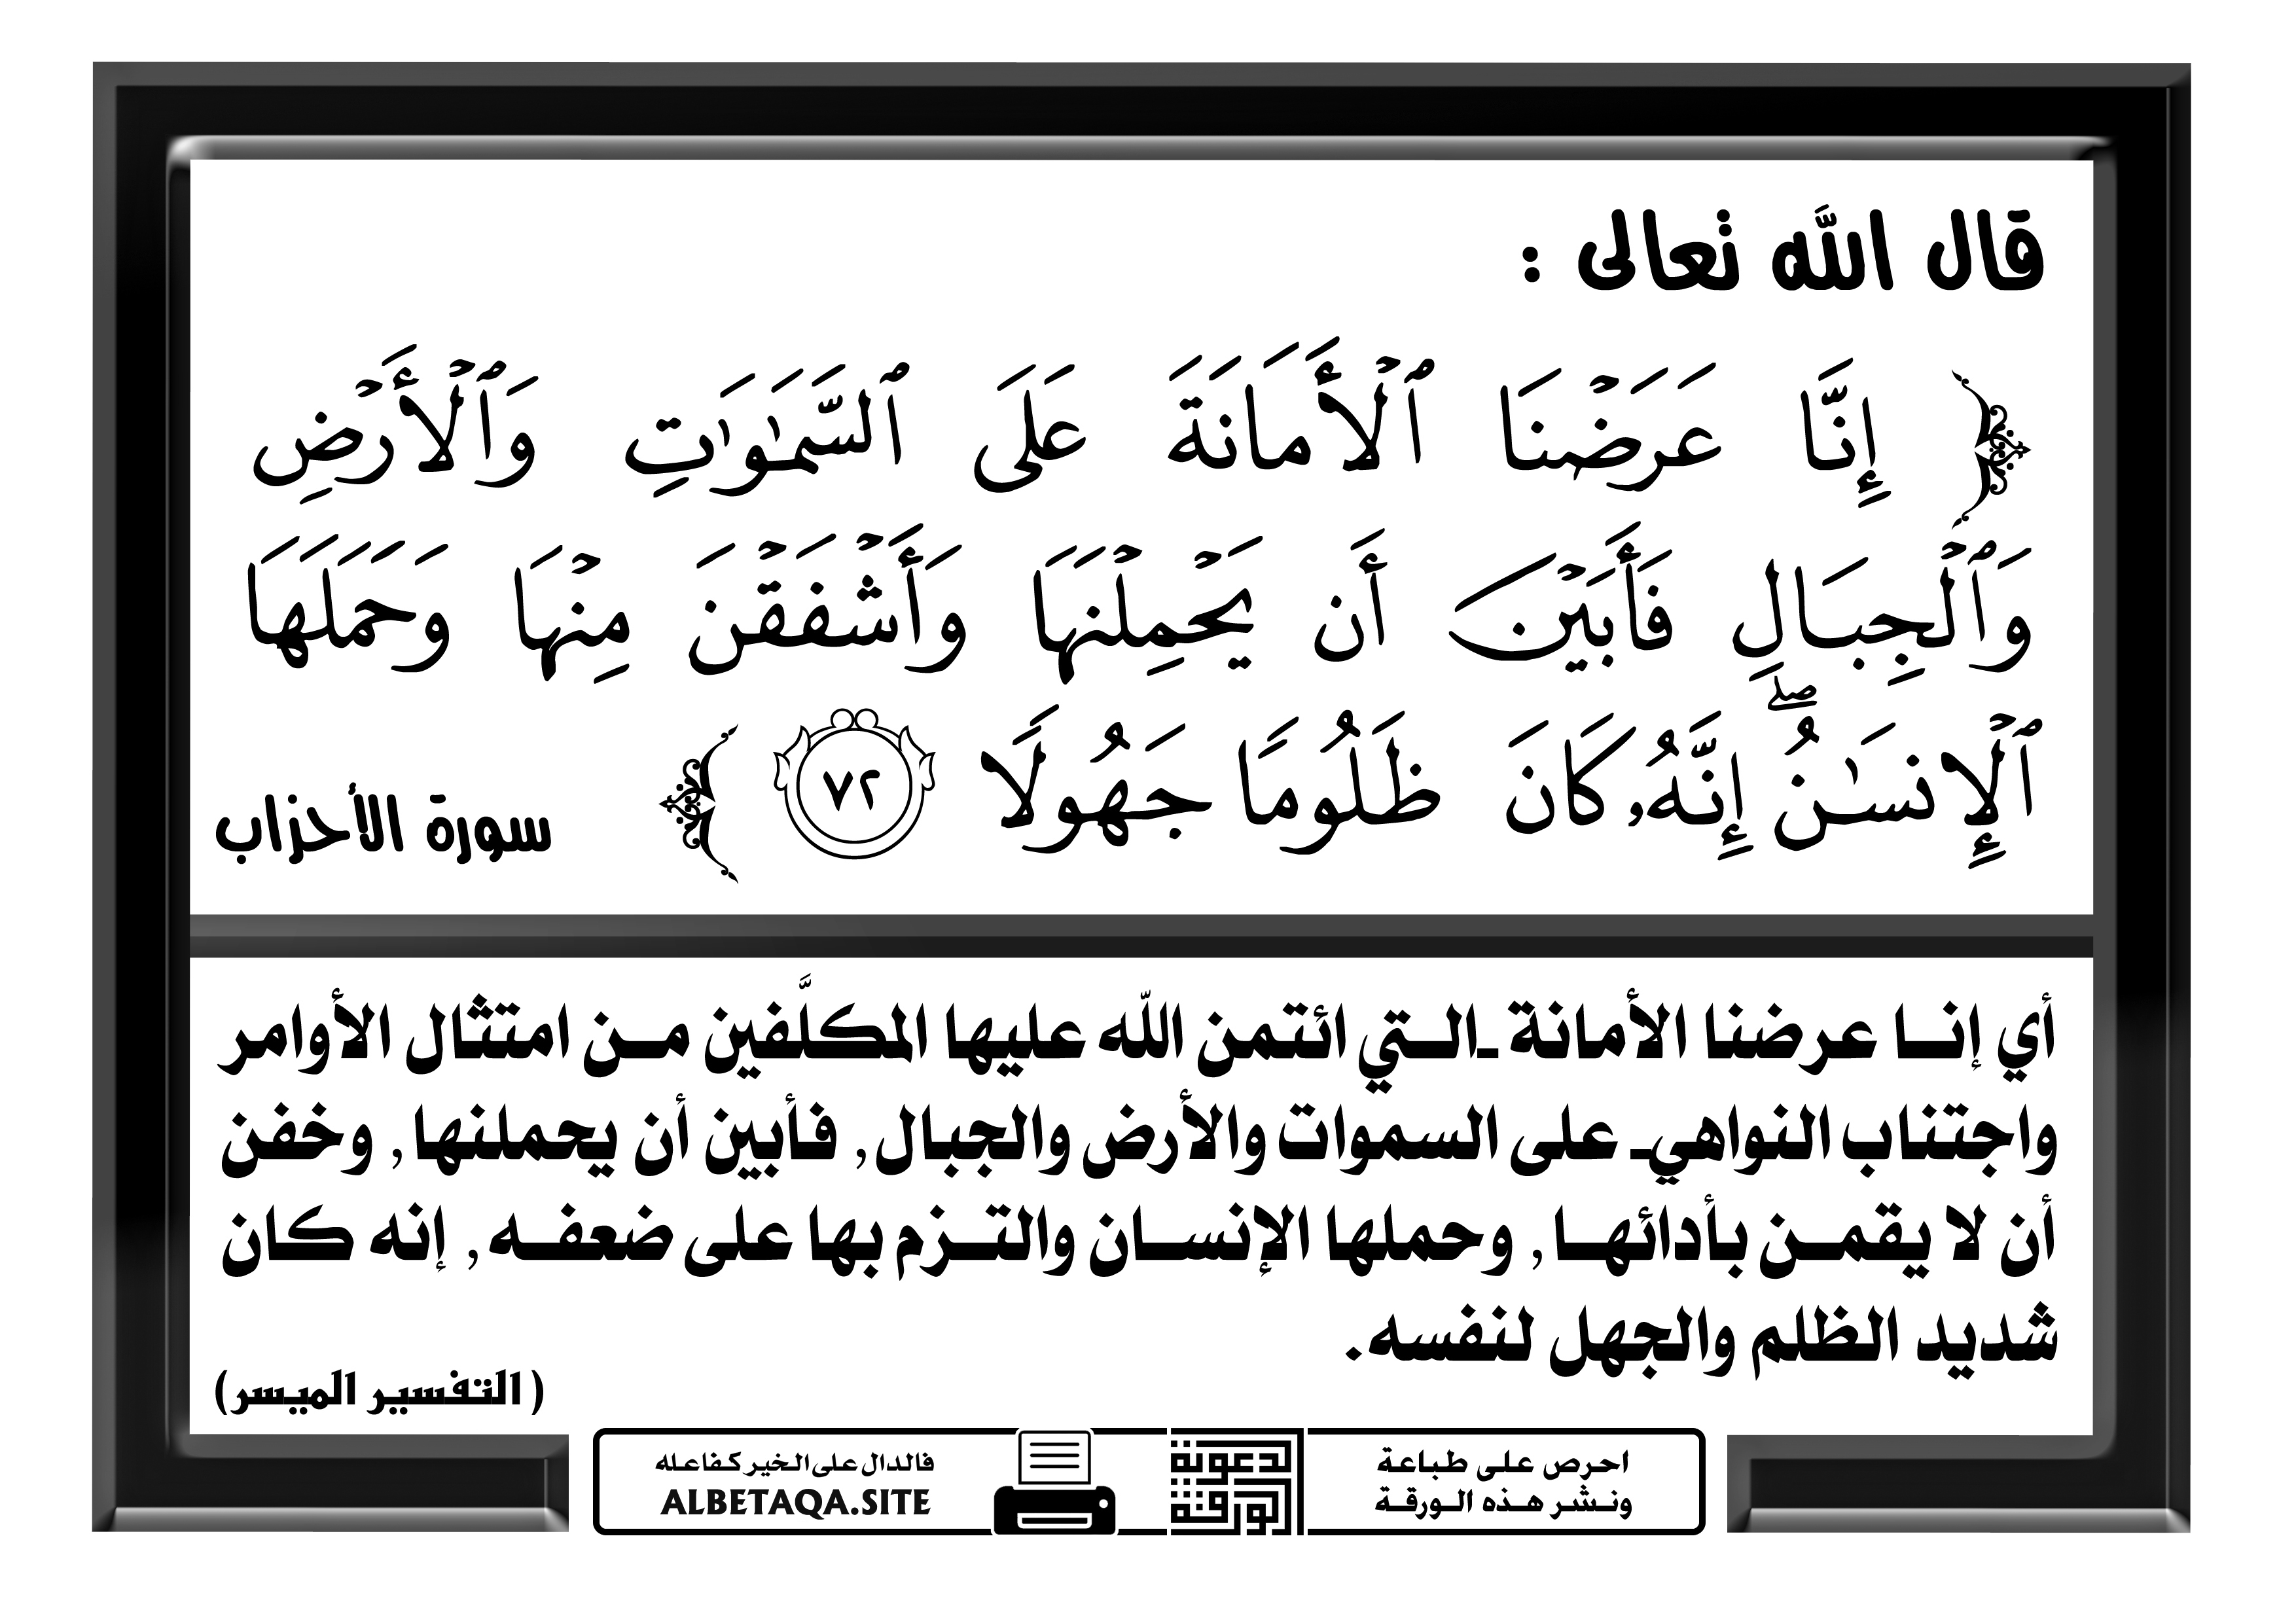 قال الله تعالى :
﴿ إِنَّا عَرَضْنَا ٱلْأَمَانَةَ عَلَى ٱلسَّمَٰوَٰتِ وَٱلْأَرْضِ
وَٱلْجِبَالِ فَأَبَيْنَ أَن يَحْمِلْنَهَا وَأَشْفَقْنَ مِنْهَا وَحَمَلَهَا
ٱلْإِنسَٰنُ ۖ إِنَّهُۥ كَانَ ظَلُومًا جَهُولًا ٧٢ ﴾ سورة الأحزاب
أي إنــا عرضنا الأمانة ـالــتي ائتمن الله عليها المكلَّفين مــن امتثال الأوامر
واجتناب النواهيـ على السموات والأرض والجبال, فأبين أن يحملنها, وخفن
أن لا يقمــن بأدائهــا, وحملها الإنســان والتــزم بها على ضعفــه, إنه كان
شديد الظلم والجهل لنفسه.
( التفسير الميسر)
احرص على طباعة
ونشر هذه الورقة
لدعوية
الورقة
فالدال على الخير كفاعله
ALBETAQA.SITE